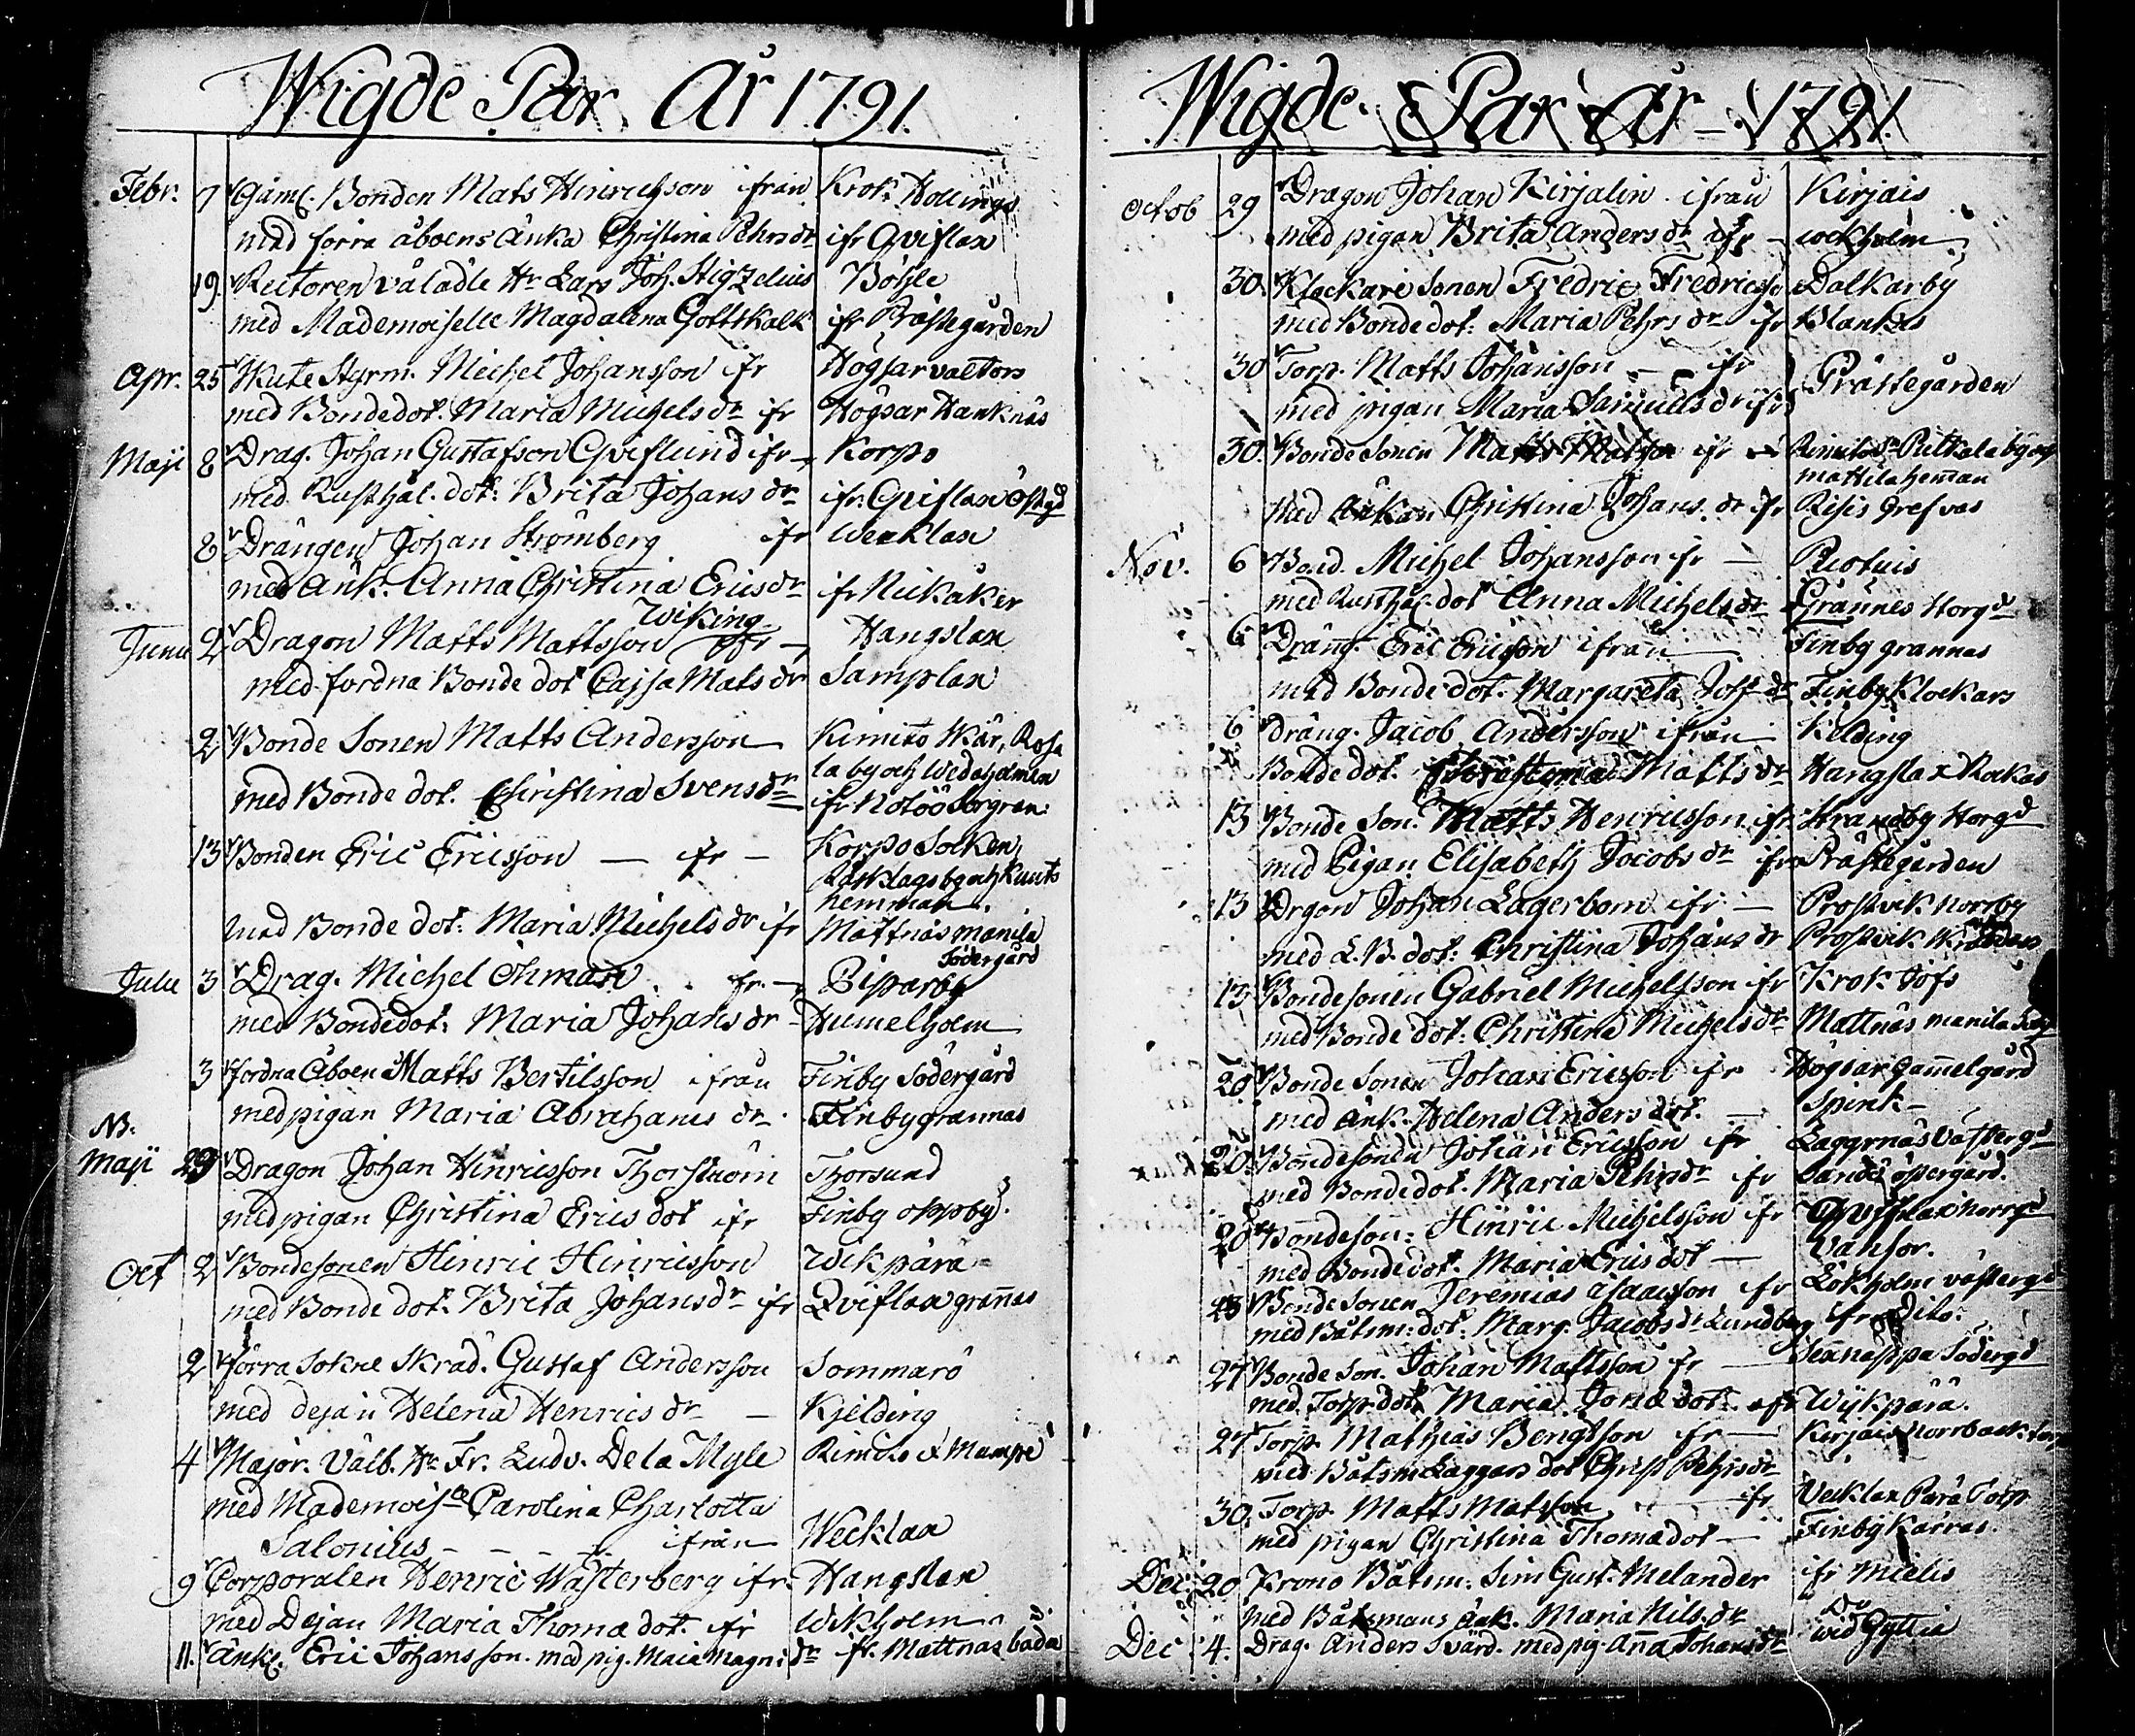 Wigde Par År 1791.
Febr. 7 Gaml. Bonden Mats Hinrichson ifrån Krok Hollings
med förra åboens Änka Christina Pehrs dr ifr Qviflax
19. Rectoren välädle Hr Lars Joh. Higzelius Böhle
med Mademoiselle Magdalena Gottskalk ifr Prästegården
Apr. 25 Skute Styrm. Michel Johansson ifr Högsar valtors
med Bondedot. Maria Michels dr ifr Högsar Hanknäs
Maji 8 Drag. Johan Gustafson Qviflund ifr Korpo
med Rusthål. dot: Brita Johans dr ifr. Qviflax Östgd
8 Drängen Johan Strömberg ifr Wecklax
med Änk. Anna Christina Erics dr ifr Nickåker
Wiking
Junii 2 Dragon Matts Mattsson ifr Hangslax
med fordna Bonde dot Cajsa Mats dr Samplax
2 Bonde Sonen Matts Andersson Kimito Skär, Rosa
la by och Wedaholmen
med Bonde dot. Christina Svens dr ifr Nötöö Sorgren
13 Bonden Eric Ericsson ifr Korpo Socken
Råsklags by och Kunts
hemman.
med Bonde dot: Maria Michels dr ifr Mattnäs manila
Södergård
Julii 3 Drag. Michel Öhman fr. Bisparby
med Bondedot: Maria Johans dr Humelholm
3 fordna Åboen Matts Bertilsson ifrån Finby Södergård
med pigan Maria Abrahams dr Finby grannas
NB.
Maji 29 Dragon Johan Hinricsson Thorström Thorsund
med pigan Christina Erics dot ifr Finby oppby.
Oct 2 Bondesonen Hinric Hinricsson Wikpärä
med Bonde dot. Brita Johans dr ifr Qviflax grannas
2 förra Sokne Skräd. Gustaf Andersson Sommarö
med dejan Helena Henrics dr Kjelding
4 Major. Välb. Hr Fr. Ludv. De la Myle Rimito & Mumpe
med Mademois:lle Carolina Charlotta
Salonius ifrån Wecklax
9 Corporalen Henric Wästerberg ifr. Hangslax
med Dejan Maria Thomæ dot. ifr Wikholm
11. Änkl. Eric Johansson. med pig. Maia Magn: dr ifr. Mattnäs båda
Wigde Par År 1791.
Octob 29 Dragon Johan Kirjalin ifrån Kirjais
med pigan Brita Anders dr ifr Lockholm
30. Klockare Sonen Fredric Fredricsson Dalkarby
med Bonde dot: Maria Pehrs dr ifr Blankas
30 Torp. Matts Johansson ifr Prästegården
med pigan Maria Samuels dr ifr
30. Bonde Sonen Matts Matsson ifr Rimito Sn Pitkala by och
mattila heman
med Änkan Christina Johans. dr ifr Risis Grefvas
Nov. 6 Bond. Michel Johansson ifr Piotuis
med Rusthål. dot Anna Michels dr Grännes Norgd
6 Dräng. Eric Ericsson ifrån Finby grannas
med Bonde dot. Margareta Joh dr Finby Klockars
6 dräng. Jacob Andersson ifrån Kelding
Bonde dot. Christina Matts dr Hangslax Rockas
13 Bonde Son. Matts Henricsson ifr Strandby Norgd
med Pigan Elisabeth Jacobs dr ifr Prästegården
13 Drgon Johan Lagerbom ifr Prostvik Norrby
med L. B. dot: Christina Johans dr Prostvik
13 Bondesonen Gabriel Michelsson ifr Krok Jofs
med Bonde dot: Christina Michels dr Mattnäs manila
20 Bonde Sonen Johan Ericsson ifr Högsar Gammelgård
med Änk. Helena Anders dot. Spink
20. Bondesonen Johan Ericsson ifr Laggrnäs Västergd
med Bondedot. Maria Pehrs dr ifr Sandö östergård.
20 Bondeson: Hinric Michelsson ifr Qviflax Norrgd
med Bonde dot. Maria Erics dot Vansor.
23 Bonde Sonen Jeremias Isaacsson ifr Lökholm västergd
med Båtsm: dot: Marg. Jacobs dr Lundberg ifr Dito.
27 Bonde Son. Johan Mattsson fr Sexnappa Södergd
med Torp dot. Maria Jonæ dot ifr Wijkpärä.
27 Torp Mathias Bengtsson fr Kirjais Norrback torp
med Båtsm Laggars dot Christ Pehrs dr
30. Torp. Matts Matsson ifr Vecklax Pärä Torp
med pigan Christina Thomæ dot Finby Kårras.
Dec. 20 Krono Båtsm: Sim Gust. Melander ifr Mielis
med Båtsmans änk. Maria Nils. dr Do
Dec 4. Drag. Anders Svärd. med pig. Anna Johans dr wid Gyttia